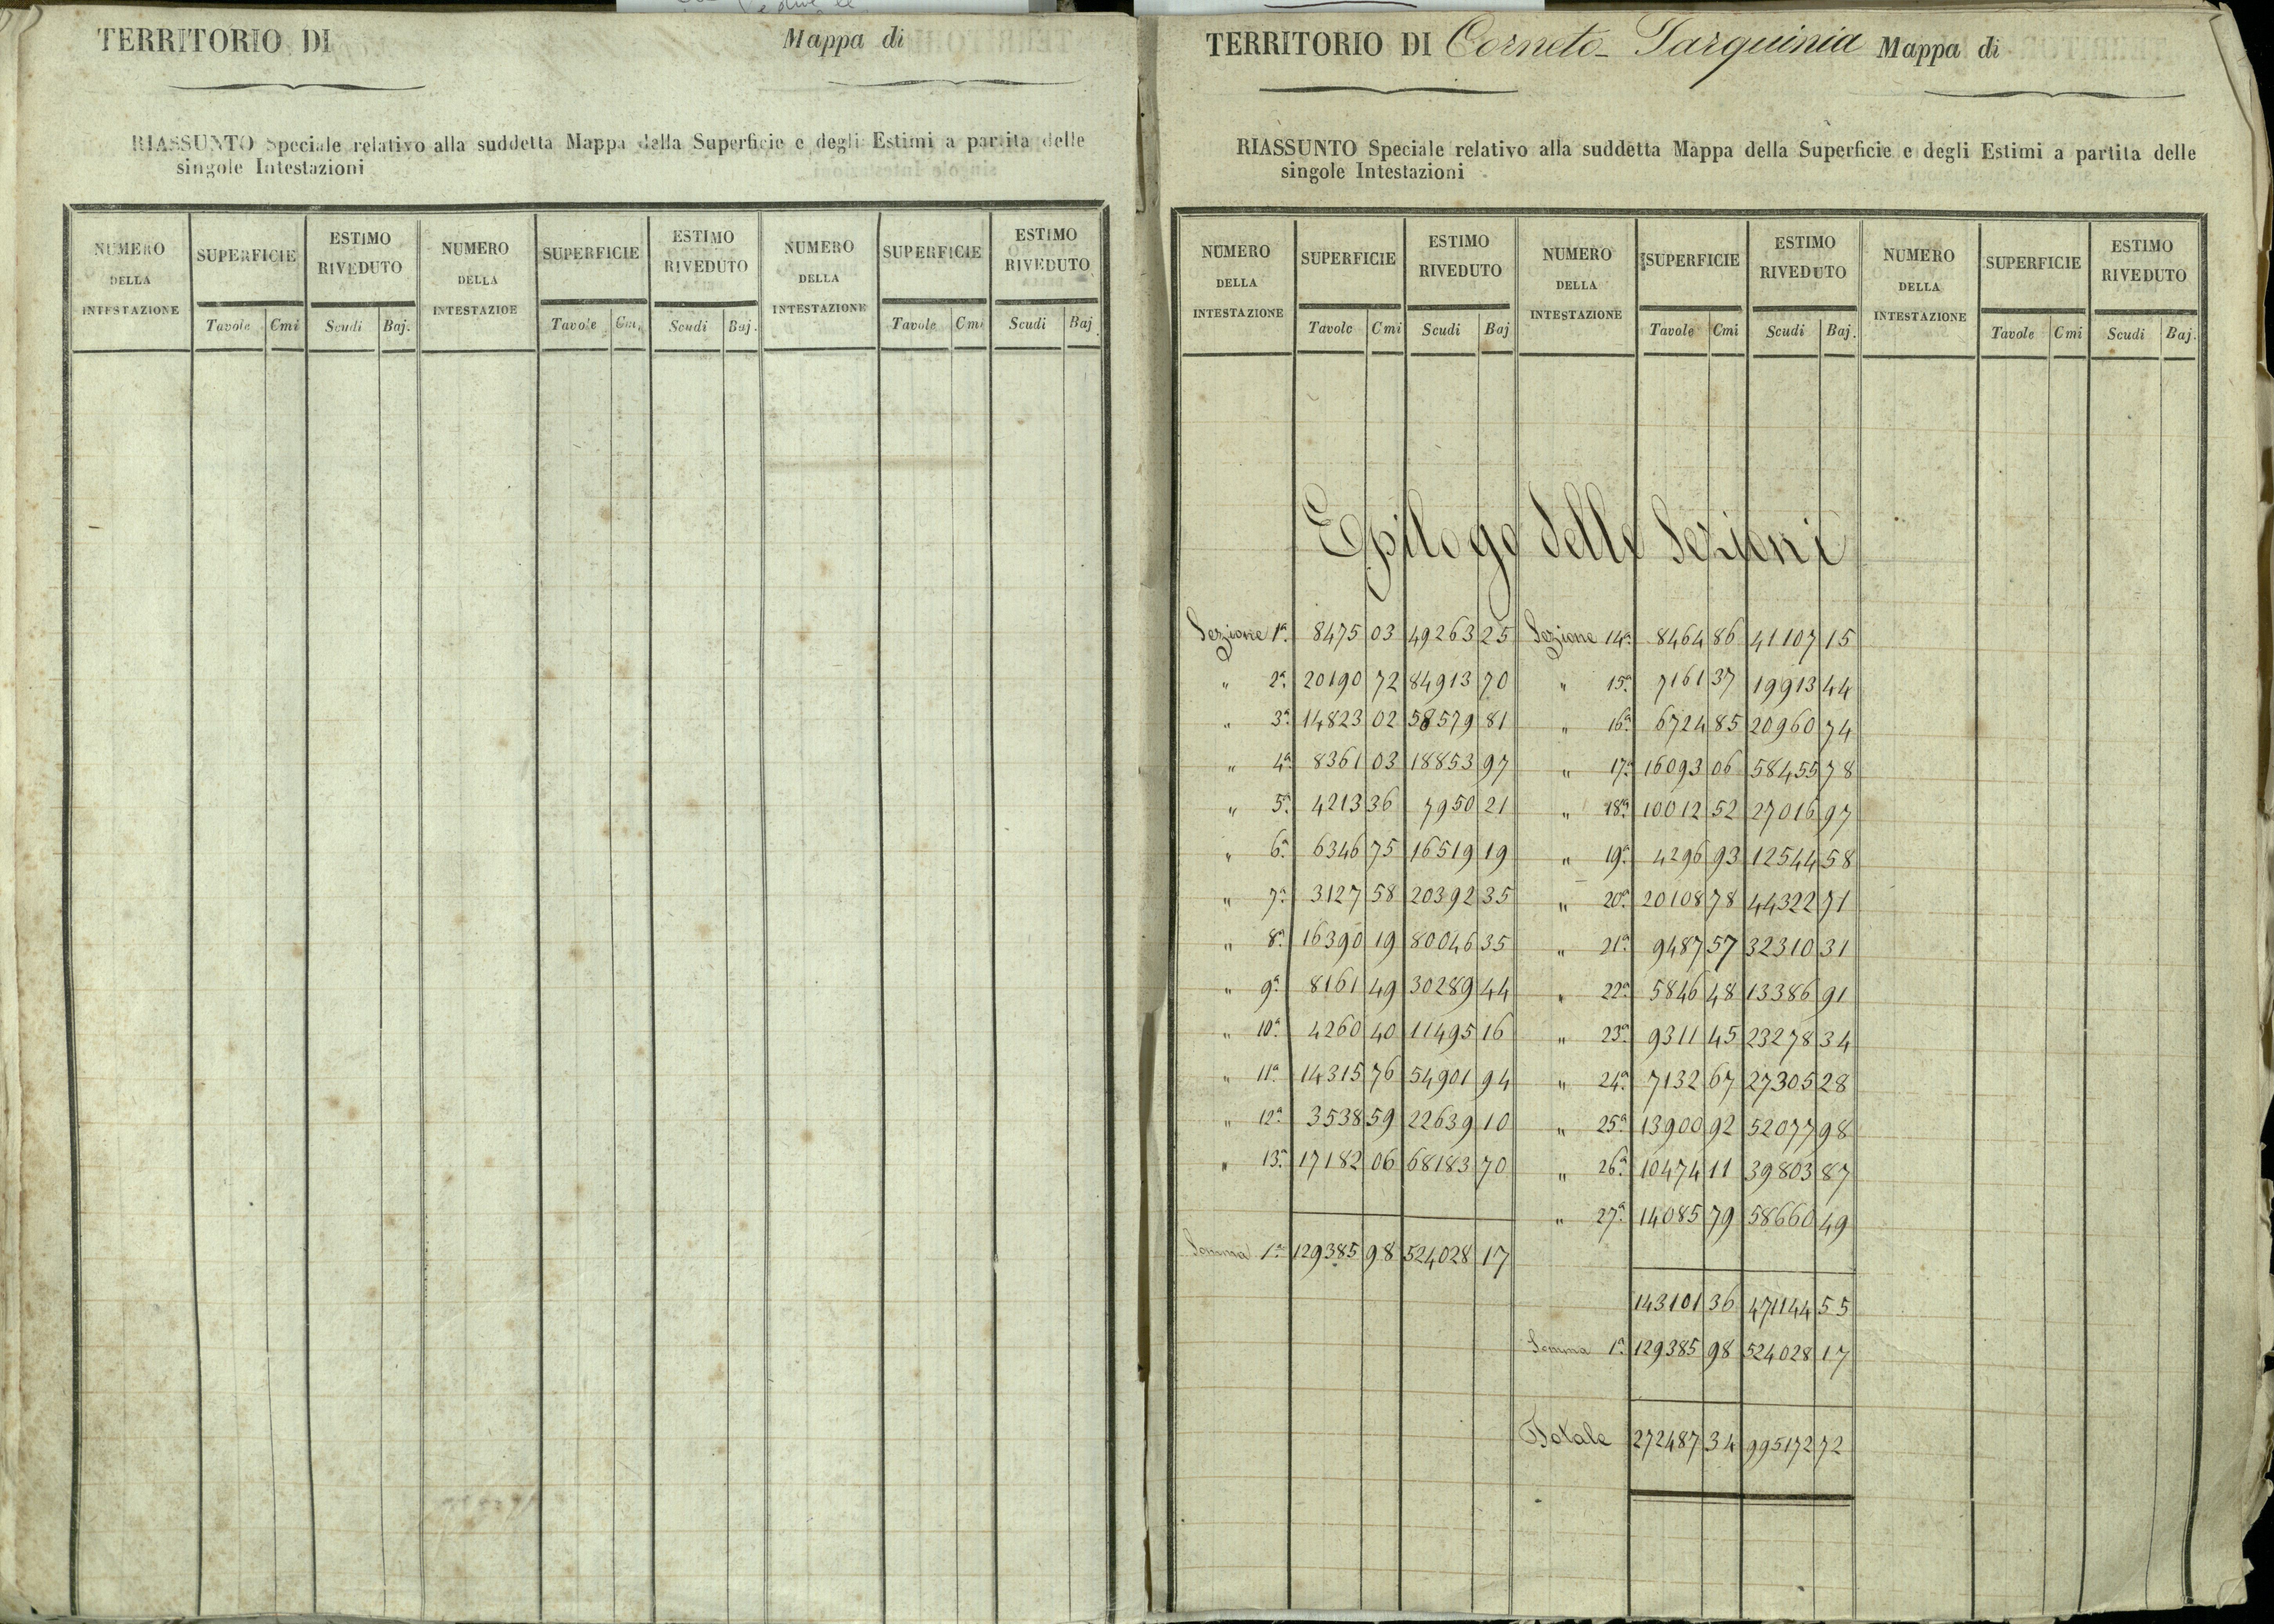 TERRITORIO DI Mappa di
RIASSUNTO Speciale relativo alla suddetta Mappa della Superficie e degli Estimi a partita delle
singole Intestazioni
NUMERO DELLA INTESTAZIONE SUPERFICIE ESTIMO RIVEDUTO NUMERO DELLA INTESTAZIOE SUPERFICIE ESTIMO RIVEDUTO NUMERO DELLA INTESTAZIONE SUPERFICIE ESTIMO RIVEDUTO
Tavole Cmi Scudi Baj. Tavole Cmi Scudi Baj. Tavole Cmi Scudi Baj
TERRITORIO DI Corneto-Tarquinia Mappa di
RIASSUNTO Speciale relativo alla suddetta Mappa della Superficie e degli Estimi a partita delle
singole Intestazioni
NUMERO DELLA INTESTAZIONE SUPERFICIE ESTIMO RIVEDUTO NUMERO DELLA INTESTAZIONE SUPERFICIE ESTIMO RIVEDUTO NUMERO DELLA INTESTAZIONE SUPERFICIE ESTIMO RIVEDUTO
Tavole Cmi Scudi Baj Tavole Cmi Scudi Baj. Tavole Cmi Scudi Baj.
Epilogo delle Sezioni
Sezione 1ª 8475 03 49263 25 Sezione 14ª 8464 86 41107 15
" 2ª 20190 72 84913 70 " 15ª 7161 37 19913 44
" 3ª 14823 02 58579 81 " 16ª 6724 85 20960 74
" 4ª 8361 03 18853 97 " 17ª 16093 06 58455 78
" 5ª 4213 36 7950 21 " 18ª 10012 52 27016 97
" 6ª 6346 75 16519 19 " 19ª 4296 93 12544 58
" 7ª 3127 58 20392 35 " 20ª 20108 78 44322 71
" 8ª 16390 19 80046 35 " 21ª 9487 57 32310 31
" 9ª 8161 49 30289 44 " 22ª 5846 48 13386 91
" 10ª 4260 40 11495 16 " 23ª 9311 45 23278 34
" 11ª 14315 76 54901 94 " 24ª 7132 67 27305 28
" 12ª 3538 59 22639 10 " 25ª 13900 92 52077 98
" 13ª 17182 06 68183 70 " 26ª 10474 11 39803 87
" 27ª 14085 79 58660 49
Somma 1ª 129385 98 524028 17
143101 36 471144 55
Somma 1ª 129385 98 524028 17
Totale 272487 34 995172 72